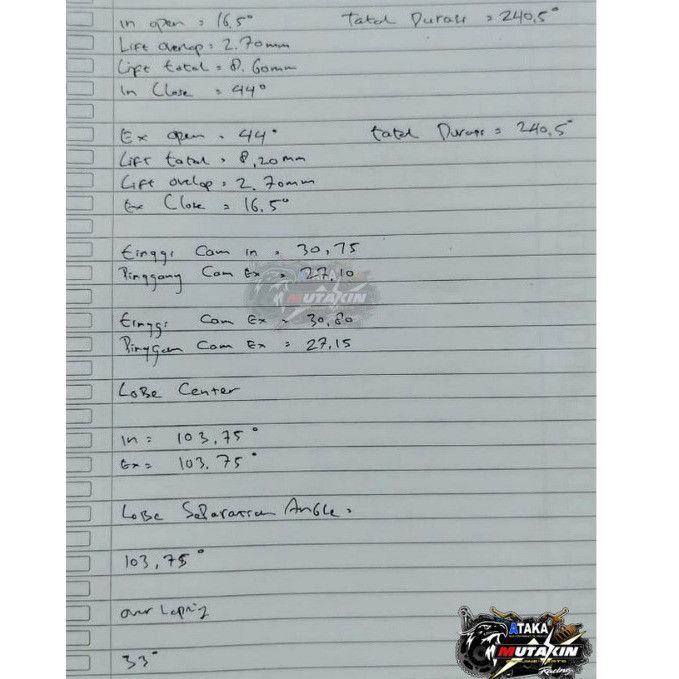 In open = 16,5° Total Durasi = 240,5°
Lift overlap = 2.70mm
Lift total = 8.60mm
In Close = 44°
Ex open = 44° total Durasi = 240,5°
Lift total = 8,20mm
Lift ovelop = 2.70mm
Ex Close = 16,5°
tinggi Cam in = 30,75
Pinggang Cam Ex = 27,10
MUTAKIN
tinggi Cam Ex = 30,80
Pinggan Cam Ex = 27,15
LoBe Center
In = 103,75°
Ex = 103,75°
LoBe SeParation AngLe =
103,75°
over Laping
33°
ATAKA
MUTAKIN
Racing